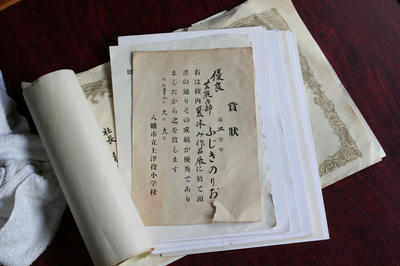 賞狀
第二学年
ふじきのりお
優良
右は校内夏休み作品展に於て頭
書の通りその成績が優秀であり
ましたから之を賞します
八幡市立上津役小学校
社長